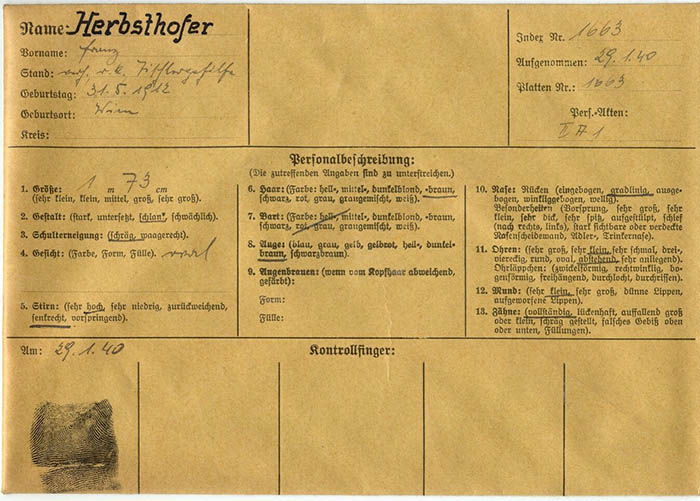 Name: Herbsthofer
Vorname: Franz
Stand: verh. r.k. Tischlergehilfe
Geburtstag: 31.5.1912
Geburtsort: Wien
Kreis:
Index Nr. 1663
Aufgenommen: 29.1.40
Platten Nr.: 1663
Pers.-Akten:
II A 1
Personalbeschreibung:
(Die zutreffenden Angaben sind zu unterstreichen.)
1. Größe: 1 m 73 cm
(sehr klein, klein, mittel, groß, sehr groß).
2. Gestalt: (stark, untersetzt, schlank, schwächlich).
3. Schulterneigung: (schräg, waagerecht).
4. Gesicht: (Farbe, Form, Fülle). oval
5. Stirn: (sehr hoch, sehr niedrig, zurückweichend,
senkrecht, vorspringend).
6. Haar: (Farbe: hell-, mittel-, dunkelblond, -braun,
schwarz, rot, grau, grangemischt, weiß).
7. Bart: (Farbe: hell-, mittel-, dunkelblond, -braun,
schwarz, rot, grau, grangemischt, weiß).
8. Auge: (blau, grau, gelb, gelbrot, hell-, dunkel-
braun, schwarzbraun).
9. Augenbrauen: (wenn vom Kopfhaar abweichend,
gefärbt):
Form:
Fülle:
10. Nase: Rücken (eingebogen, gradlinig, ausge-
bogen, winkliggebogen, wellig).
Besonderheiten (Vorsprung, sehr groß, sehr
klein, sehr dick, sehr spitz, aufgestülpt, schief
(nach rechts, links), stark sichtbare oder verdeckte
Nasenscheidewand, Adler-, Trinkernase).
11. Ohren: (sehr groß, sehr klein, sehr schmal, drei-,
viereckig, rund, oval, abstehend, sehr anliegend).
Ohrläppchen: (zwickelförmig, rechtwinklig, bo-
genförmig, freihängend, durchlocht, durchrissen).
12. Mund: (sehr klein, sehr groß, dünne Lippen,
aufgeworfene Lippen).
13. Zähne: (vollständig, lückenhaft, auffallend groß
oder klein, schräg gestellt, falsches Gebiß oben
oder unten, Füllungen).
Am: 29.1.40
Kontrollfinger: